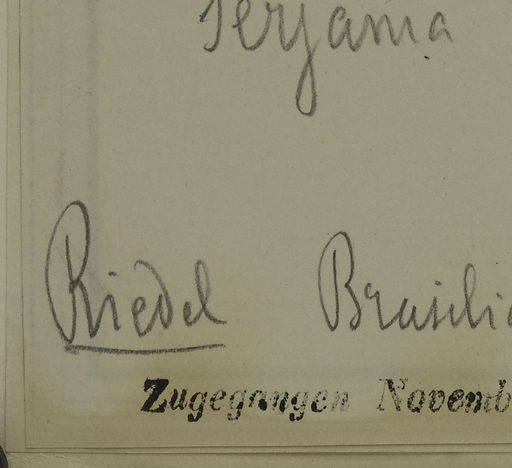 Serjania
Riedel Brasilia
Zugegangen Novemb